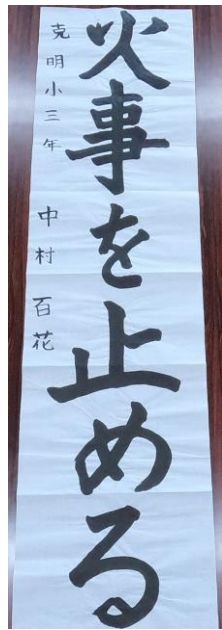 火事を止める
克明小三年 中村百花